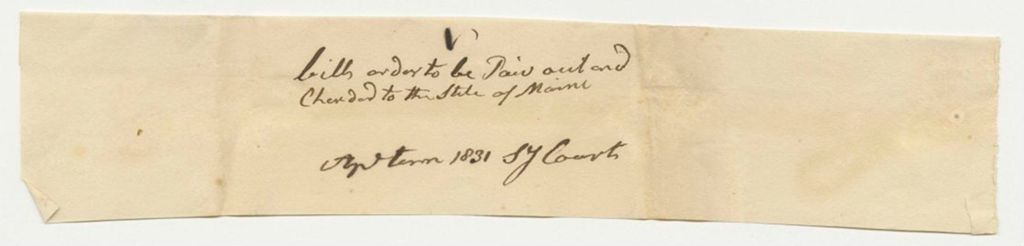 V
bills order to be Paid out and
Charded to the State of Maine
Apl term 1831 SJ Court